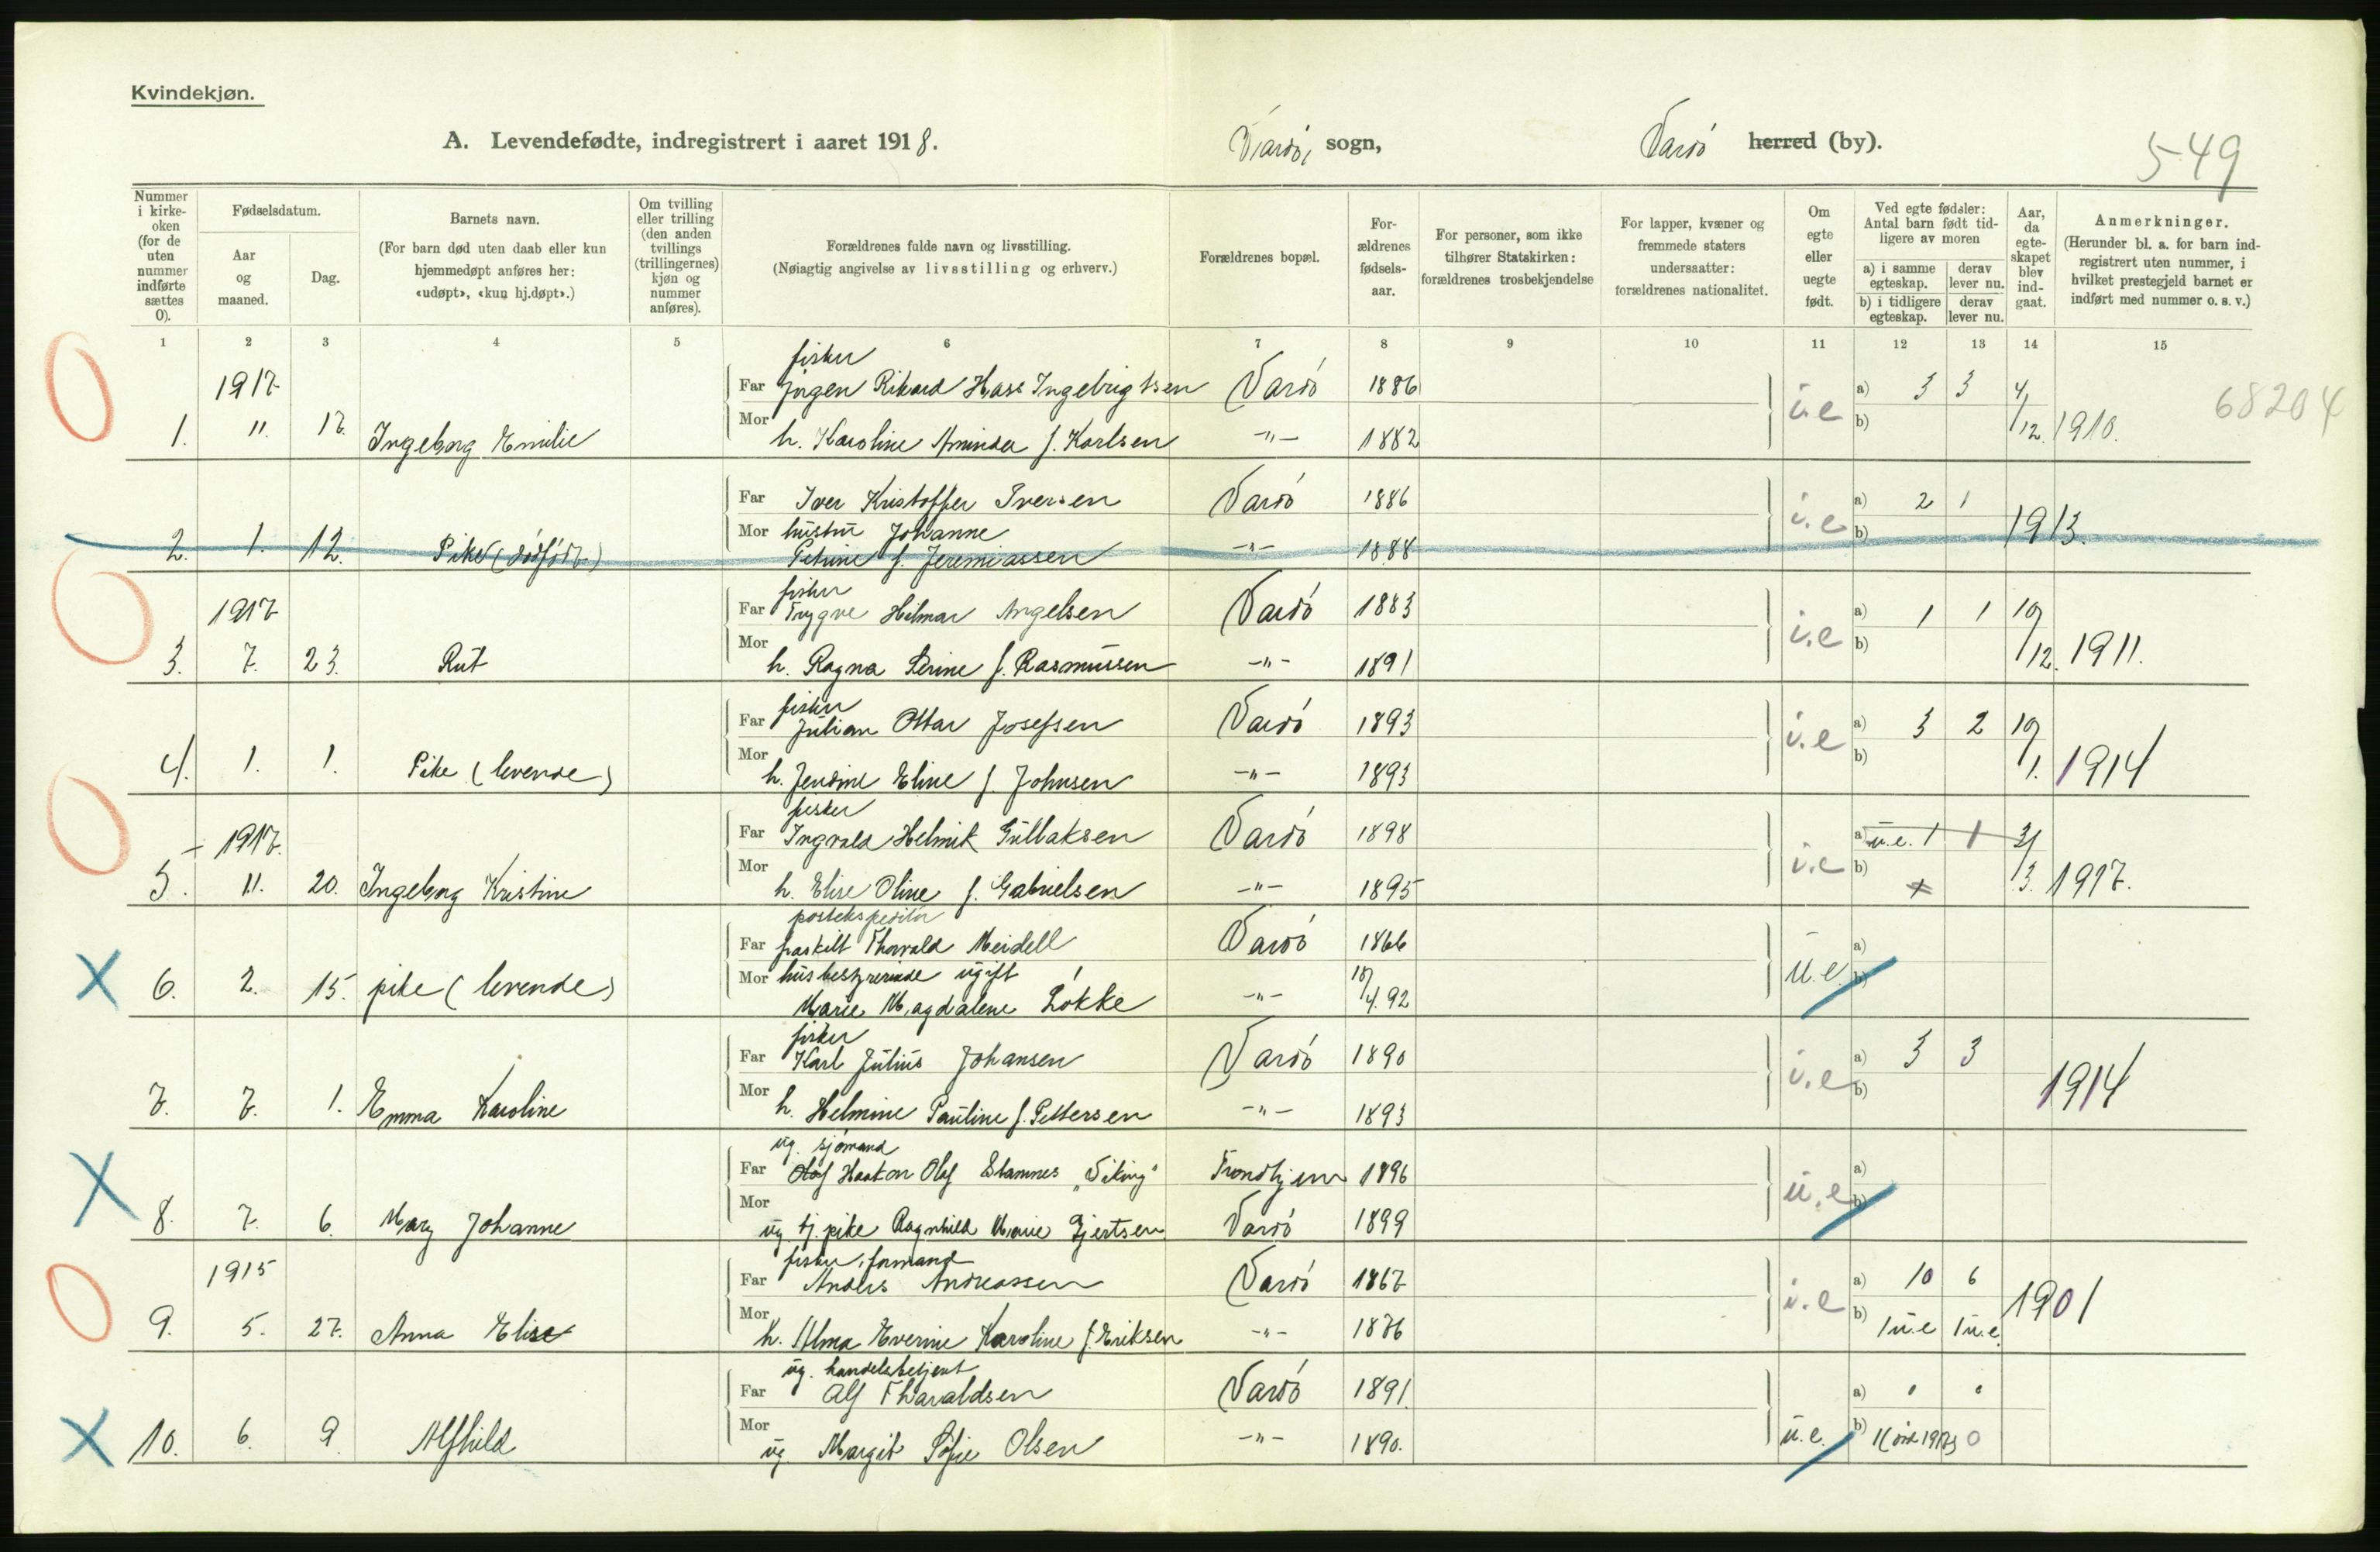 Kvindekjøn.
A. Levendefødte, indregistrert i aaret 1918.
Vardö, sogn,
Vardö herred (by).
549
Nummer i kirkeoken (for de uten nummer indførte sættes 0).
Fødselsdatum.
Aar og maaned.
Dag.
Barnets navn.
(For barn død uten daab eller kun hjemmedøpt anføres her: «udøpt», «kun hj.døpt».)
Om tvilling eller trilling (den anden tvillings (trillingernes) kjøn og nummer anføres).
Forældrenes fulde navn og livsstilling.
(Nøiagtig angivelse av livsstilling og erhverv.)
Forældrenes bopæl.
Forældrenes fødselsaar.
For personer, som ikke tilhører Statskirken: forældrenes trosbekjendelse
For lapper, kvæner og fremmede staters undersaatter: forældrenes nationalitet.
Om egte eller uegte født.
Ved egte fødsler: Antal barn født tidligere av moren
a) i samme egteskap.
derav lever nu.
b) i tidligere egteskap.
derav lever nu.
Aar, da egteskapet blev indgaat.
Anmerkninger.
(Herunder bl. a. for barn indregistrert uten nummer, i hvilket prestegjeld barnet er indført med nummer o. s. v.)
1 2 3 4 5 6 7 8 9 10 11 12 13 14 15
fisker
1917 Far Jörgen Rikard Hass Ingebrigtsen Vardö 1886 i.e a) 3 3 4/12 1910. 68204
1. 11. 17. Ingeborg Emilie Mor h. Karoline Aminda f. Karlsen -"- 1882 b)
Far Iver Kristoffer Iversen Vardö 1886 i.e a) 2 1 1913.
Mor hustru Johanne b)
2. 1. 12. Pike (dödfödt) Petrine f. Jeremiassen -"- 1888
fisker
1917 Far Trygve Hilmar Angelsen Vardö 1883 i.e a) 1 1 10/12. 1911.
3. 7. 23. Rut Mor h. Ragna Serine f. Rasmussen -"- 1891 b)
fisker
Far Julian Ottar Josefsen Vardö 1893 i.e a) 3 2 10/1. 1914
4. 1. 1. Pike (levende) Mor h. Jendine Eline f. Johnsen -"- 1893 b)
fisker
1917. Far Ingvald Helmik Gullaksen Vardö 1898 i.e a) u.e. 1 1 3/3. 1917.
5. 11. 20. Ingeborg Kristine Mor h. Elise Oline f. Gabrielsen -"- 1895 b)
postekspeditör
Far fraskilt Thorvald Meidell Vardö 1866 u.e. a)
Mor husbestyrerinde ugift b)
6. 2. 15. pike (levende) Marie Magdalene Lökke -"- 10/4.92
fisker
Far Karl Julius Johansen Vardö 1890 i.e a) 3 3 1914
7. 7. 1. Emma Karoline Mor h. Helmine Pauline f. Pettersen -"- 1893 b)
ug. sjömand
Far Olof Haakon Olaf Stamnes "Viking" Trondhjem 1896 u.e a)
8. 7. 6. Mary Johanne Mor ug. tj. pike Ragnhild Marie Gjertsen Vardö 1899 b)
fisker, formand
1915 Far Anders Andreassen Vardö 1867 i.e a) 10 6 1901
9. 5. 27. Anna Elise Mor h. Alma Everine Karoline f. Eriksen -"- 1876 b) 1 u.e 1 u.e.
ug. handelsbetjent
Far Alf Tharaldsen Vardö 1891. u.e. a)
10. 6. 9. Alfhild Mor ug. Margit Sofie Olsen -"- 1890. b) 0